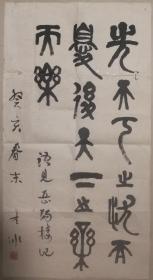 先天下之憂而
憂後天下之樂
而樂
語見岳陽樓記
癸亥春末